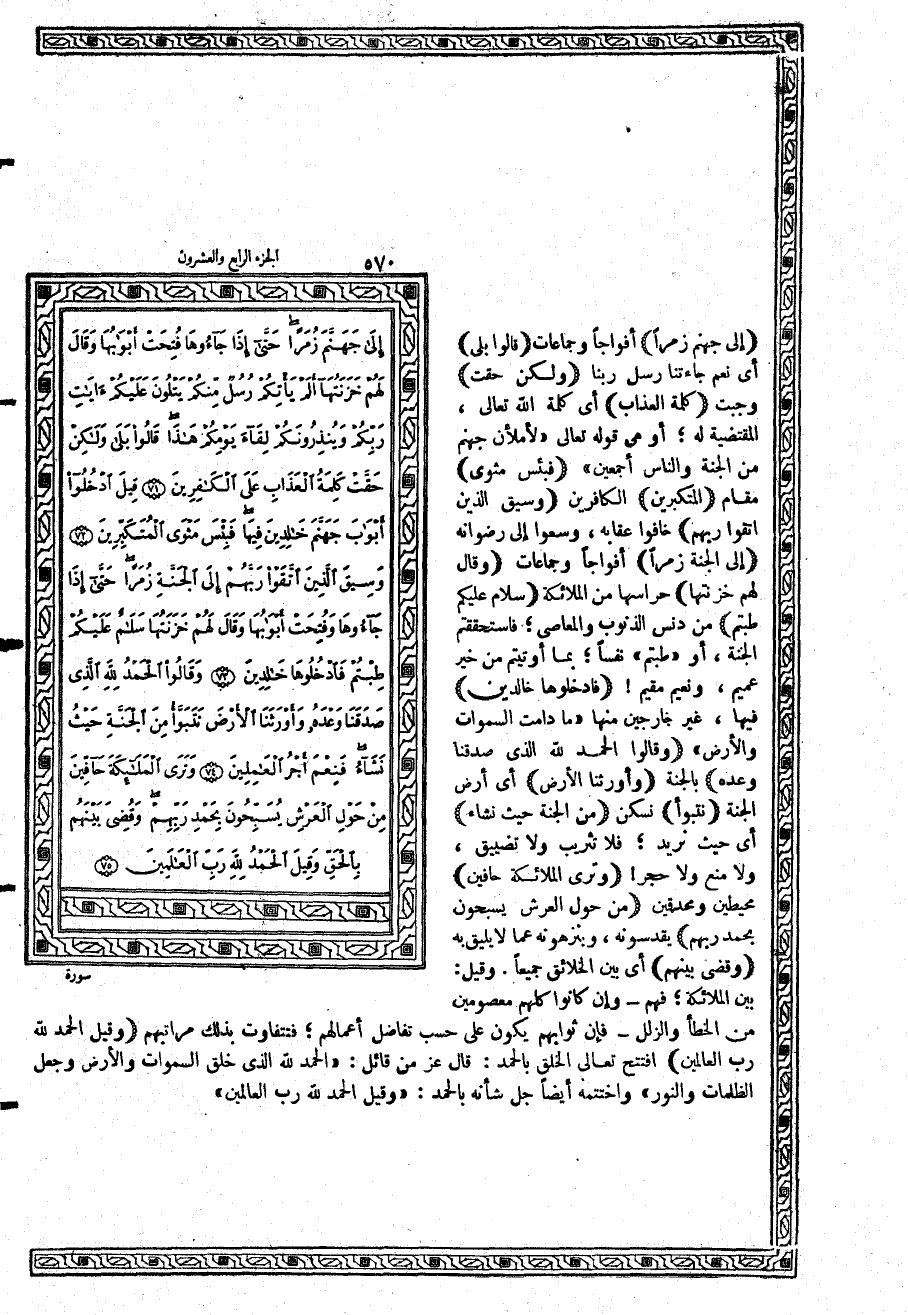 ٥٧٠
الجزء الرابع والعشرون
إِلَىٰ جَهَنَّمَ زُمَرًا ۖ حَتَّىٰٓ إِذَا جَآءُوهَا فُتِحَتْ أَبْوَٰبُهَا وَقَالَ
لَهُمْ خَزَنَتُهَآ أَلَمْ يَأْتِكُمْ رُسُلٌ مِّنكُمْ يَتْلُونَ عَلَيْكُمْ ءَايَٰتِ
رَبِّكُمْ وَيُنذِرُونَكُمْ لِقَآءَ يَوْمِكُمْ هَٰذَا ۚ قَالُوا۟ بَلَىٰ وَلَٰكِنْ
حَقَّتْ كَلِمَةُ ٱلْعَذَابِ عَلَى ٱلْكَٰفِرِينَ ٧١ قِيلَ ٱدْخُلُوٓا۟
أَبْوَٰبَ جَهَنَّمَ خَٰلِدِينَ فِيهَا ۖ فَبِئْسَ مَثْوَى ٱلْمُتَكَبِّرِينَ ٧٢
وَسِيقَ ٱلَّذِينَ ٱتَّقَوْا۟ رَبَّهُمْ إِلَى ٱلْجَنَّةِ زُمَرًا ۖ حَتَّىٰٓ إِذَا
جَآءُوهَا وَفُتِحَتْ أَبْوَٰبُهَا وَقَالَ لَهُمْ خَزَنَتُهَا سَلَٰمٌ عَلَيْكُمْ
طِبْتُمْ فَٱدْخُلُوهَا خَٰلِدِينَ ٧٣ وَقَالُوا۟ ٱلْحَمْدُ لِلَّهِ ٱلَّذِى
صَدَقَنَا وَعْدَهُۥ وَأَوْرَثَنَا ٱلْأَرْضَ نَتَبَوَّأُ مِنَ ٱلْجَنَّةِ حَيْثُ
نَشَآءُ ۖ فَنِعْمَ أَجْرُ ٱلْعَٰمِلِينَ ٧٤ وَتَرَى ٱلْمَلَٰٓئِكَةَ حَآفِّينَ
مِنْ حَوْلِ ٱلْعَرْشِ يُسَبِّحُونَ بِحَمْدِ رَبِّهِمْ ۖ وَقُضِىَ بَيْنَهُم
بِٱلْحَقِّ وَقِيلَ ٱلْحَمْدُ لِلَّهِ رَبِّ ٱلْعَٰلَمِينَ ٧٥
سورة
(إلى جهنم زمراً) أفواجاً وجماعات (قالوا بلى)
أى نعم جاءتنا رسل ربنا (ولكن حقت)
وجبت (كلمة العذاب) أى كلمة الله تعالى ،
المقتضية له ؛ أو هى قوله تعالى «لأملأن جهنم
من الجنة والناس أجمعين» (فبئس مثوى)
مقام (المتكبرين) الكافرين (وسيق الذين
اتقوا ربهم) خافوا عقابه ، وسعوا إلى رضوانه
(إلى الجنة زمراً) أفواجاً وجماعات (وقال
لهم خزنتها) حراسها من الملائكة (سلام عليكم
طبتم) من دنس الذنوب والمعاصى ؛ فاستحققتم
الجنة ، أو «طبتم» نفساً ؛ بما أوتيتم من خير
عميم ، ونعيم مقيم ! (فادخلوها خالدين)
فيها ، غير خارجين منها «ما دامت السموات
والأرض» (وقالوا الحمد لله الذى صدقنا
وعده) بالجنة (وأورثنا الأرض) أى أرض
الجنة (نتبوأ) نسكن (من الجنة حيث نشاء)
أى حيث نريد ؛ فلا تثريب ولا تضييق ،
ولا منع ولا حجر! (وترى الملائكة حافين)
محيطين ومحدقين (من حول العرش يسبحون
بحمد ربهم) يقدسونه ، وينزهونه عما لا يليق به
(وقضى بينهم) أى بين الخلائق جميعاً . وقيل :
بين الملائكة ؛ فهم – وإن كانوا كلهم معصومين
من الخطأ والزلل – فإن ثوابهم يكون على حسب تفاضل أعمالهم ؛ فتتفاوت بذلك مراتبهم (وقيل الحمد لله
رب العالمين) افتتح تعالى الخلق بالحمد : قال عز من قائل : «الحمد لله الذى خلق السموات والأرض وجعل
الظلمات والنور» واختتمه أيضاً جل شأنه بالحمد : «وقيل الحمد لله رب العالمين»